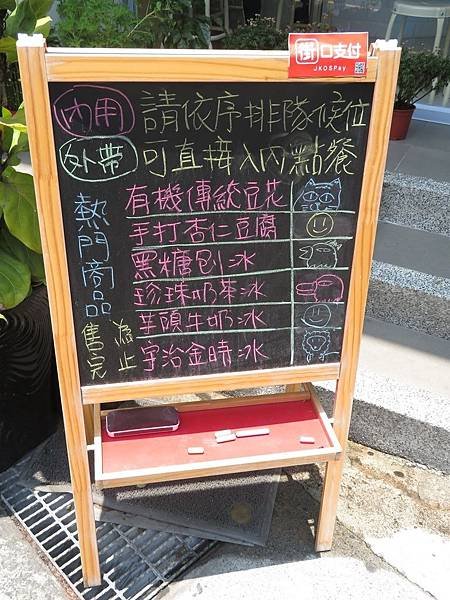 街口支付
JKOSPay
內用 請依序排隊候位
外帶 可直接入內點餐
熱門商品
售完為止
有機傳統豆花
手打杏仁豆腐
黑糖刨冰
珍珠奶茶冰
芋頭牛奶冰
宇治金時冰